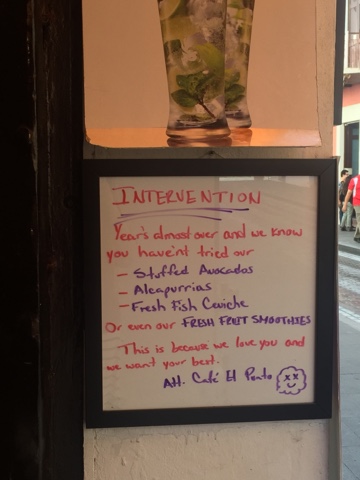 INTERVENTION
Year's almost over and we know
you haven't tried our
- Stuffed Avocados
- Alcapurrias
- Fresh Fish Ceviche
Or even our FRESH FRUIT SMOOTHIES
This is because we love you and
we want your best.
Att. Café El Punto